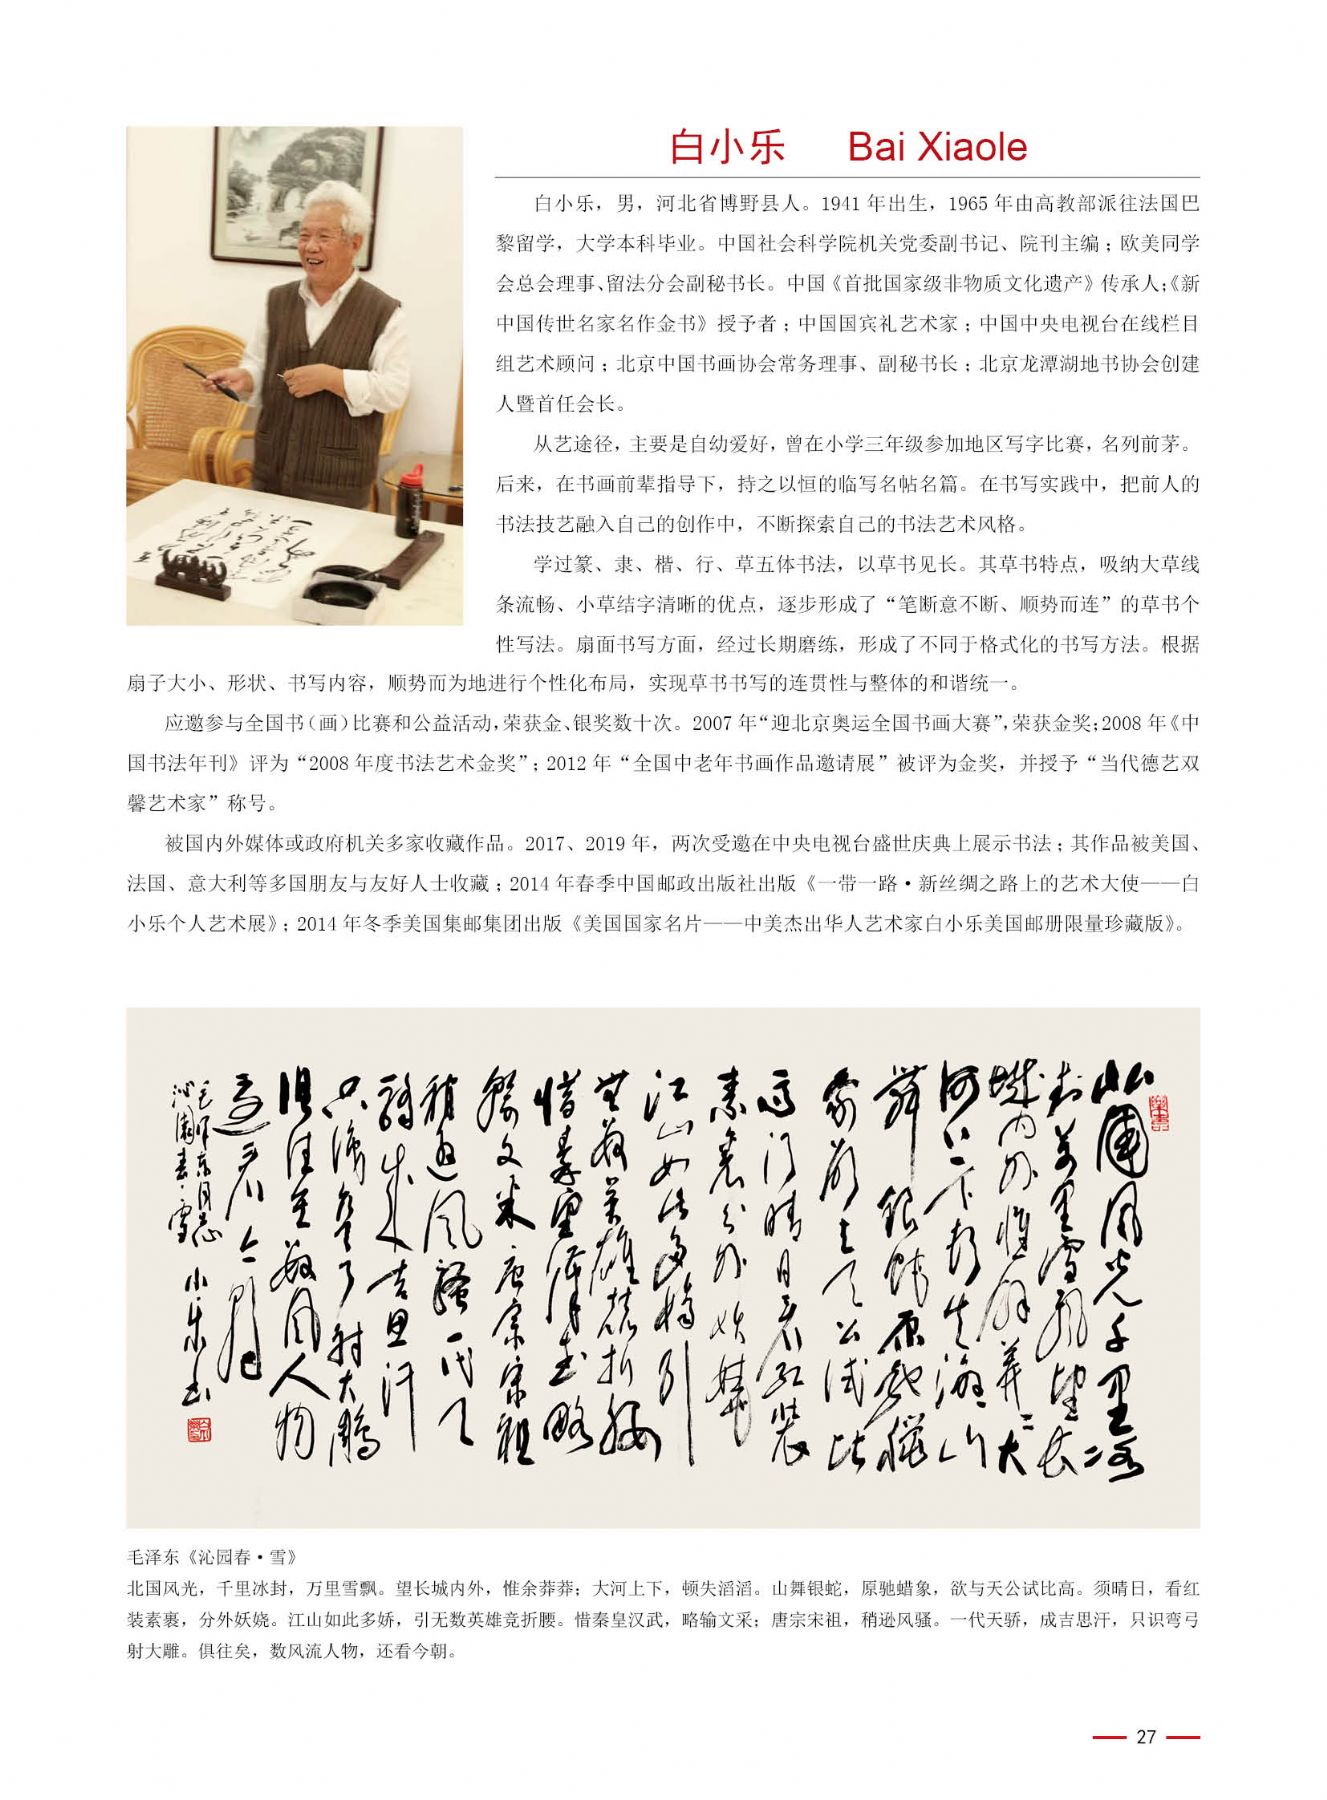 白小乐 Bai Xiaole
白小乐，男，河北省博野县人。1941 年出生，1965 年由高教部派往法国巴
黎留学，大学本科毕业。中国社会科学院机关党委副书记、院刊主编；欧美同学
会总会理事、留法分会副秘书长。中国《首批国家级非物质文化遗产》传承人；《新
中国传世名家名作金书》授予者；中国国宾礼艺术家；中国中央电视台在线栏目
组艺术顾问；北京中国书画协会常务理事、副秘书长；北京龙潭湖地书协会创建
人暨首任会长。
从艺途径，主要是自幼爱好，曾在小学三年级参加地区写字比赛，名列前茅。
后来，在书画前辈指导下，持之以恒的临写名帖名篇。在书写实践中，把前人的
书法技艺融入自己的创作中，不断探索自己的书法艺术风格。
学过篆、隶、楷、行、草五体书法，以草书见长。其草书特点，吸纳大草线
条流畅、小草结字清晰的优点，逐步形成了“笔断意不断、顺势而连”的草书个
性写法。扇面书写方面，经过长期磨练，形成了不同于格式化的书写方法。根据
扇子大小、形状、书写内容，顺势而为地进行个性化布局，实现草书书写的连贯性与整体的和谐统一。
应邀参与全国书（画）比赛和公益活动，荣获金、银奖数十次。2007 年“迎北京奥运全国书画大赛”，荣获金奖；2008 年《中
国书法年刊》评为“2008 年度书法艺术金奖”；2012 年“全国中老年书画作品邀请展”被评为金奖，并授予“当代德艺双
馨艺术家”称号。
被国内外媒体或政府机关多家收藏作品。2017、2019 年，两次受邀在中央电视台盛世庆典上展示书法；其作品被美国、
法国、意大利等多国朋友与友好人士收藏；2014 年春季中国邮政出版社出版《一带一路·新丝绸之路上的艺术大使——白
小乐个人艺术展》；2014 年冬季美国集邮集团出版《美国国家名片——中美杰出华人艺术家白小乐美国邮册限量珍藏版》。
毛泽东《沁园春·雪》
北国风光，千里冰封，万里雪飘。望长城内外，惟余莽莽；大河上下，顿失滔滔。山舞银蛇，原驰蜡象，欲与天公试比高。须晴日，看红
装素裹，分外妖娆。江山如此多娇，引无数英雄竞折腰。惜秦皇汉武，略输文采；唐宗宋祖，稍逊风骚。一代天骄，成吉思汗，只识弯弓
射大雕。俱往矣，数风流人物，还看今朝。
27